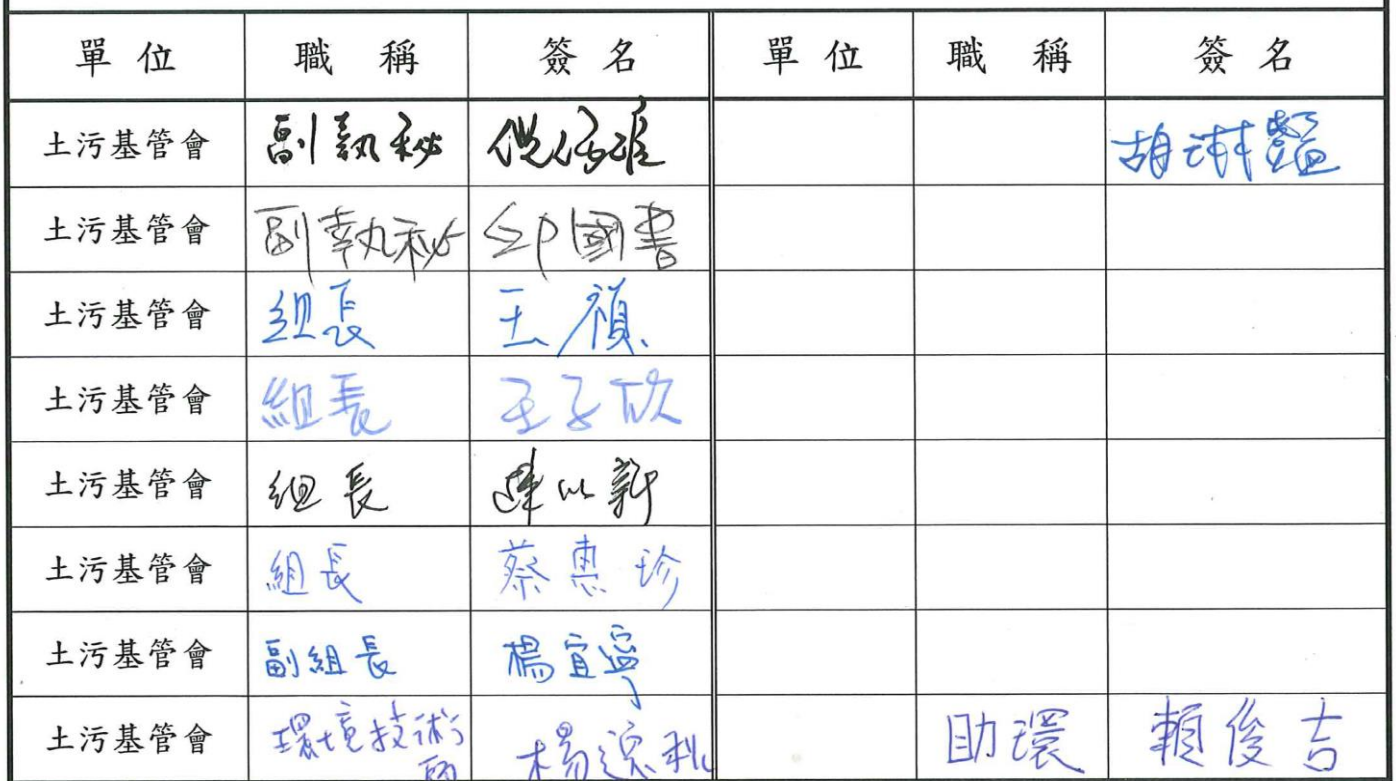 單位 職稱 簽名 單位 職稱 簽名
土污基管會 副執秘 胡琳豔
土污基管會 副執秘 邱國書
土污基管會 組長 王禎
土污基管會 組長 王子欣
土污基管會 組長 陳以新
土污基管會 組長 蔡惠珍
土污基管會 副組長 楊宜寧
土污基管會 環境技術師 楊 助環 賴俊吉